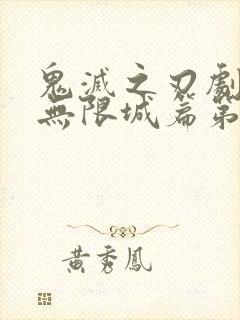 鬼滅之刃劇
無限城篇第
黃秀鳳